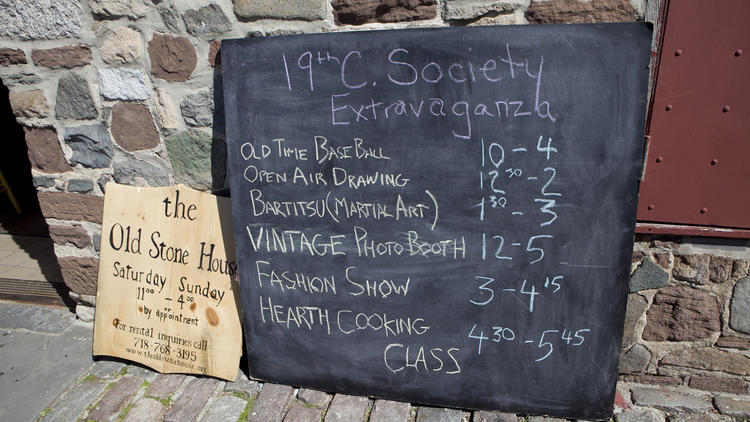 19th C. Society
Extravaganza
Old Time Base Ball 10 - 4
Open Air Drawing 12 30 - 2
Bartitsu (Martial Art) 1 30 - 3
Vintage Photo Booth 12 - 5
Fashion Show 3 - 4 15
Hearth Cooking 4 30 - 5 45
Class
the
Old Stone House
Saturday Sunday
11 00 - 4 00
by appointment
For rental inquiries call
718-768-3195
www.theoldstonehouse.org